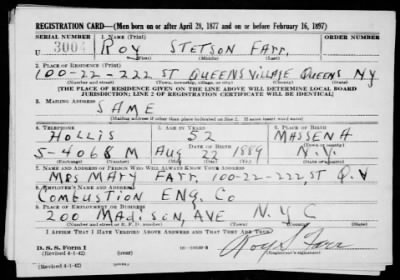 REGISTRATION CARD—(Men born on or after April 28, 1877 and on or before February 16, 1897)
SERIAL NUMBER 1. NAME (Print) ORDER NUMBER
U 3004 ROY STETSON FARR,
(First) (Middle) (Last)
2. PLACE OF RESIDENCE (Print)
100-22-222 ST QUEENS VILLAGE QUEENS NY
(Number and street) (Town, township, village, or city) (County) (State)
[THE PLACE OF RESIDENCE GIVEN ON THE LINE ABOVE WILL DETERMINE LOCAL BOARD
JURISDICTION; LINE 2 OF REGISTRATION CERTIFICATE WILL BE IDENTICAL]
3. MAILING ADDRESS
SAME
(Mailing address if other than place indicated on line 2. If same insert word same)
4. TELEPHONE 5. AGE IN YEARS 6. PLACE OF BIRTH
HOLLIS 52 MASSENA
DATE OF BIRTH
5-4068 M AUG 22 1889 N.Y.
(Exchange) (Number) (Mo.) (Day) (Yr.) (State or country)
7. NAME AND ADDRESS OF PERSON WHO WILL ALWAYS KNOW YOUR ADDRESS
MRS MARY FARR 100-22-222, ST Q.V
8. EMPLOYER'S NAME AND ADDRESS
COMBUSTION ENG. CO
9. PLACE OF EMPLOYMENT OR BUSINESS
200 MADISON, AVE N.Y C
(Number and street or R. F. D. number) (Town) (County) (State)
I AFFIRM THAT I HAVE VERIFIED ABOVE ANSWERS AND THAT THEY ARE TRUE.
D. S. S. Form 1
(Revised 4-1-42) (over)
Roy S. Farr
(Registrant's signature)
(Revised 4-1-42)